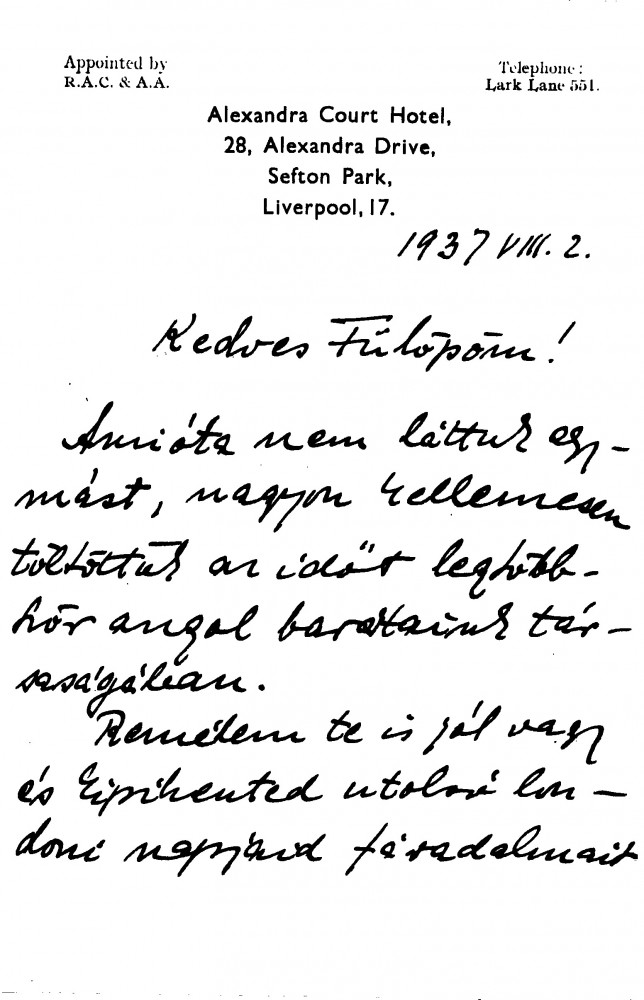 Appointed by
R.A.C. & A.A.
Telephone:
Lark Lane 551.
Alexandra Court Hotel,
28, Alexandra Drive,
Sefton Park,
Liverpool, 17.
1937 VIII. 2.
Kedves Fülöpöm!
Amióta nem láttuk egy-
mást, nagyon kellemesen
töltöttük az időt legtöbb-
ször angol barátaink tár-
saságában.
Remélem te is jól vagy
és kipihented utolsó lon-
doni napjaid fáradalmait